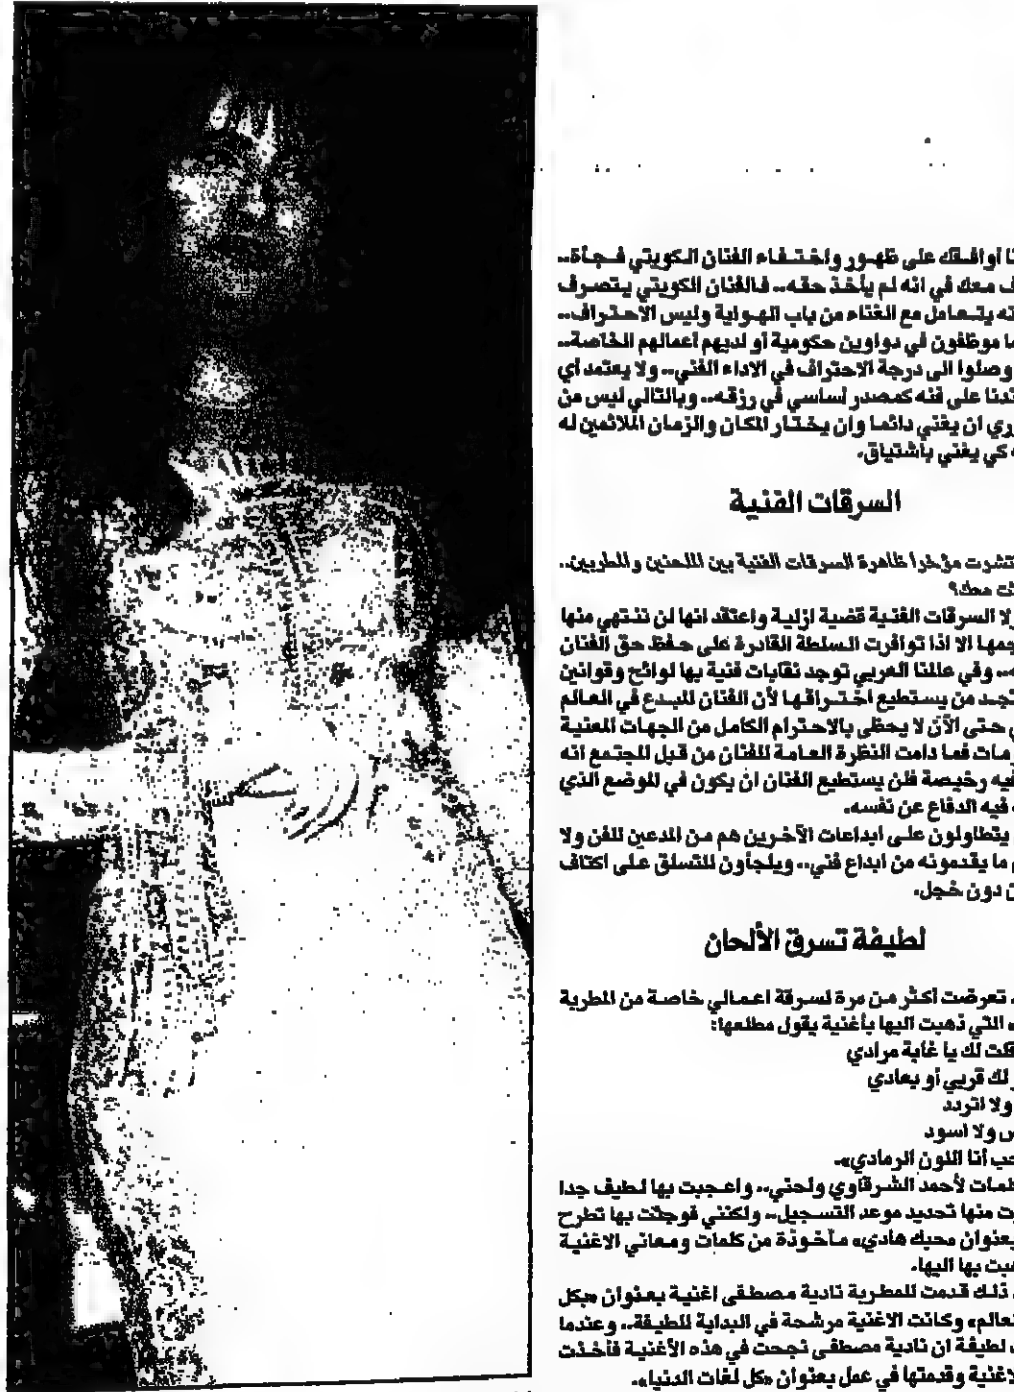 أوافقك على ظهور واختفاء الفنان الكويتي فجأة..
معك في انه لم يأخذ حقه.. فالفنان الكويتي يتصرف
يتعامل مع الغناء من باب الهواية وليس الاحتراف..
موظفون في دواوين حكومية أو لديهم أعمالهم الخاصة..
وصلوا الى درجة الاحتراف في الاداء الفني.. ولا يعتمد أي
على فنه كمصدر أساسي في رزقه.. وبالتالي ليس من
ان يغني دائما وان يختار المكان والزمان الملائمين له
كي يغني باشتياق.
السرقات الفنية
تشرت مؤخرا ظاهرة السرقات الفنية بين الملحنين والمطربين..
معك؟
لا السرقات الفنية قضية ازلية واعتقد انها لن ننتهي منها
الا اذا توافرت السلطة القادرة على حفظ حق الفنان
وفي عالمنا العربي توجد نقابات فنية بها لوائح وقوانين
تجد من يستطيع اختراقها لأن الفنان المبدع في العالم
حتى الآن لا يحظى بالاحترام الكامل من الجهات المعنية
فما دامت النظرة العامة للفنان من قبل المجتمع انه
ورخيصة فلن يستطيع الفنان ان يكون في الموضع الذي
فيه الدفاع عن نفسه.
يتطاولون على ابداعات الآخرين هم من المدعين للفن ولا
ما يقدمونه من ابداع فني.. ويلجأون للتسلق على اكتاف
دون خجل.
لطيفة تسرق الألحان
تعرضت أكثر من مرة لسرقة اعمالي خاصة من المطربة
التي ذهبت اليها بأغنية يقول مطلعها:
قلت لك يا غاية مرادي
لك قربي أو بعادي
ولا اتردد
ولا اسود
أنا اللون الرمادي».
لأحمد الشرقاوي ولحني.. واعجبت بها لطيف جدا
منها تحديد موعد التسجيل.. ولكنني فوجئت بها تطرح
بعنوان «حبك هادي» مأخوذة من كلمات ومعاني الاغنية
بها اليها.
ذلك قدمت للمطربة نادية مصطفى اغنية بعنوان «بكل
وكانت الاغنية مرشحة في البداية للطيفة.. وعندما
لطيفة ان نادية مصطفى نجحت في هذه الأغنية فأخذت
وقدمتها في عمل بعنوان «كل لغات الدنيا».